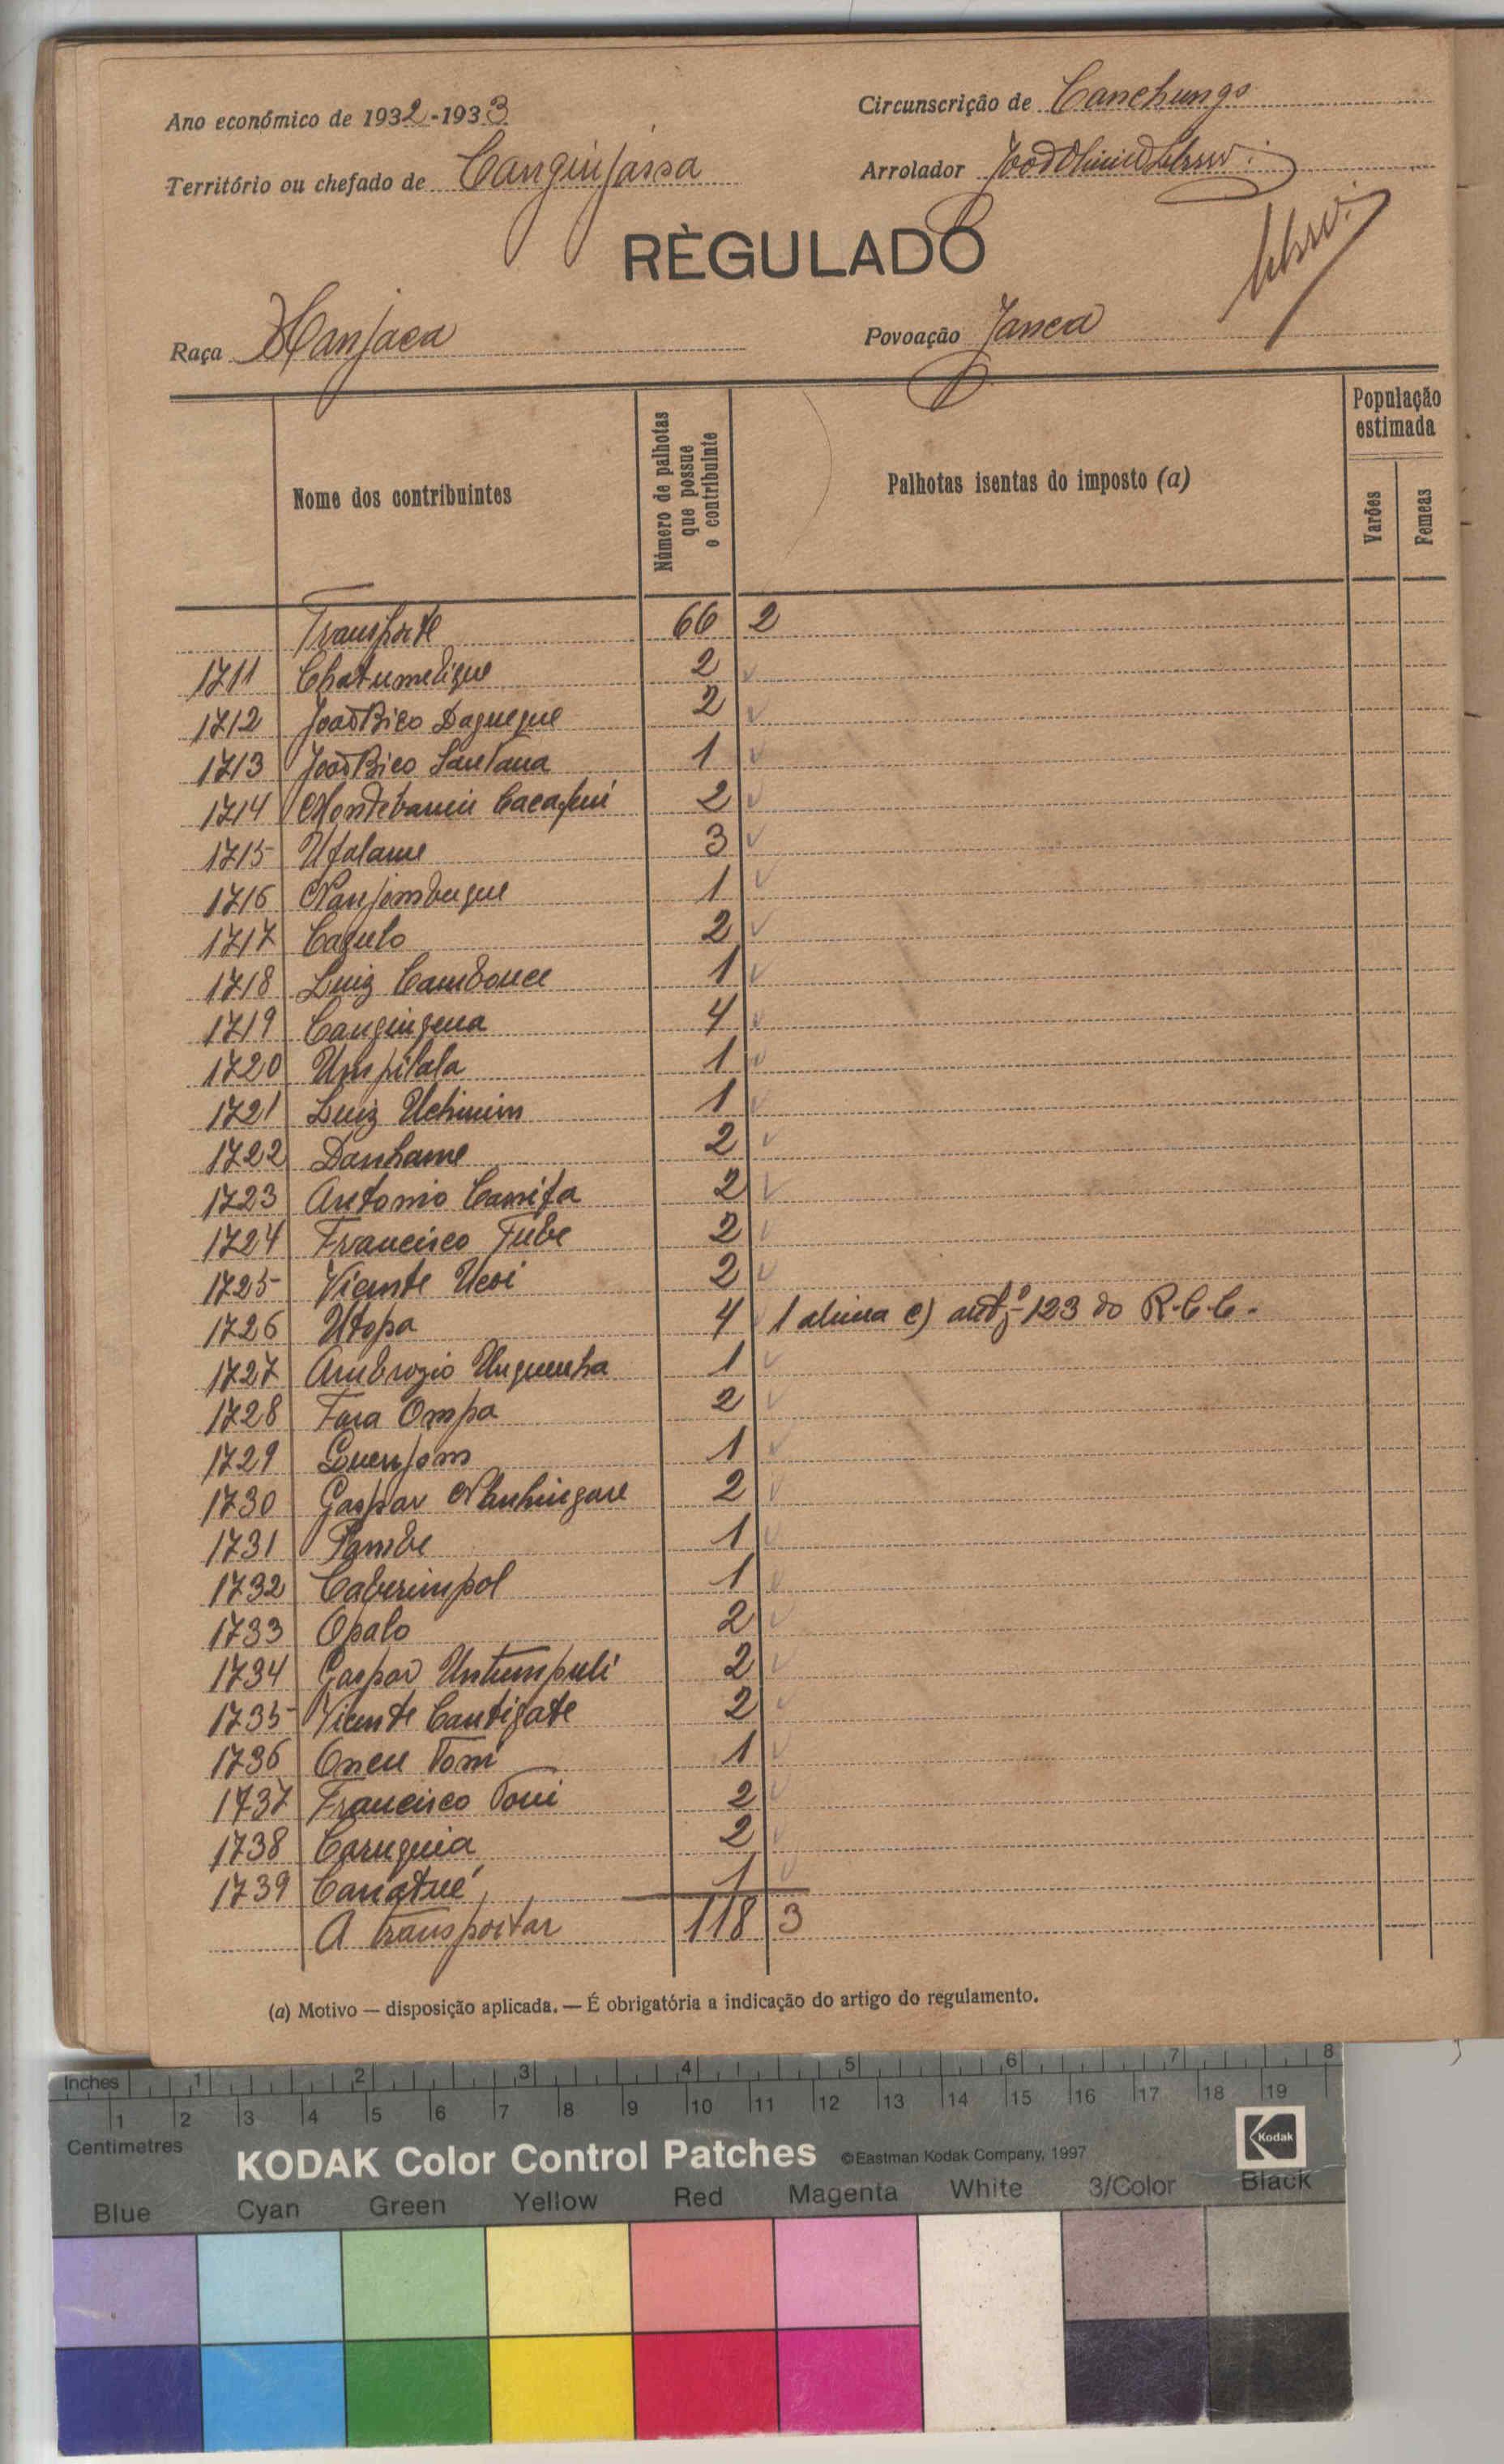 Ano económico de 1932-1933
Circunscrição de Canchungo
Território ou chefado de Canginjassa
Arrolador João
RÈGULADO
Raça Manjaca
Povoação Janca
Nome dos contribuintes
Número de palhotas que possue o contribuinte
Palhotas isentas do imposto (a)
População estimada
Varões
Femeas
Transporte 66 2
1711 Chatumelique 2
1712 João Bico Dagueque 2
1713 João Bico Santana 1
1714 2
1715 Ufalame 3
1716 Nanjombuque 1
1717 Cagulo 2
1718 Luiz Cambonce 1
1719 Canginguena 4
1720 Umpilala 1
1721 Luiz Uchimim 1
1722 Danhame 2
1723 Antonio Canifa 2
1724 Francisco Tube 2
1725 Vicente 2
1726 Utopa 4 1 alinea c) artº 123 do R.C.C.
1727 Ambrozio Unguenha 1
1728 Fara Ompa 2
1729 Guenjom 1
1730 Gaspar Nanhingare 2
1731 Pambe 1
1732 Caberimpol 1
1733 Opalo 2
1734 Gaspar Untumpuli 2
1735 Vicente Cantigate 2
1736 Oncu Toni 1
1737 Francisco Toni 2
1738 Caruguia 2
1739 Canatué 1
A transportar 118 3
(a) Motivo — disposição aplicada. — É obrigatória a indicação do artigo do regulamento.
Inches 1 2 3 4 5 6 7 8
1 2 3 4 5 6 7 8 9 10 11 12 13 14 15 16 17 18 19
Centimetres
KODAK Color Control Patches ©Eastman Kodak Company, 1997 Kodak
Blue Cyan Green Yellow Red Magenta White 3/Color Black